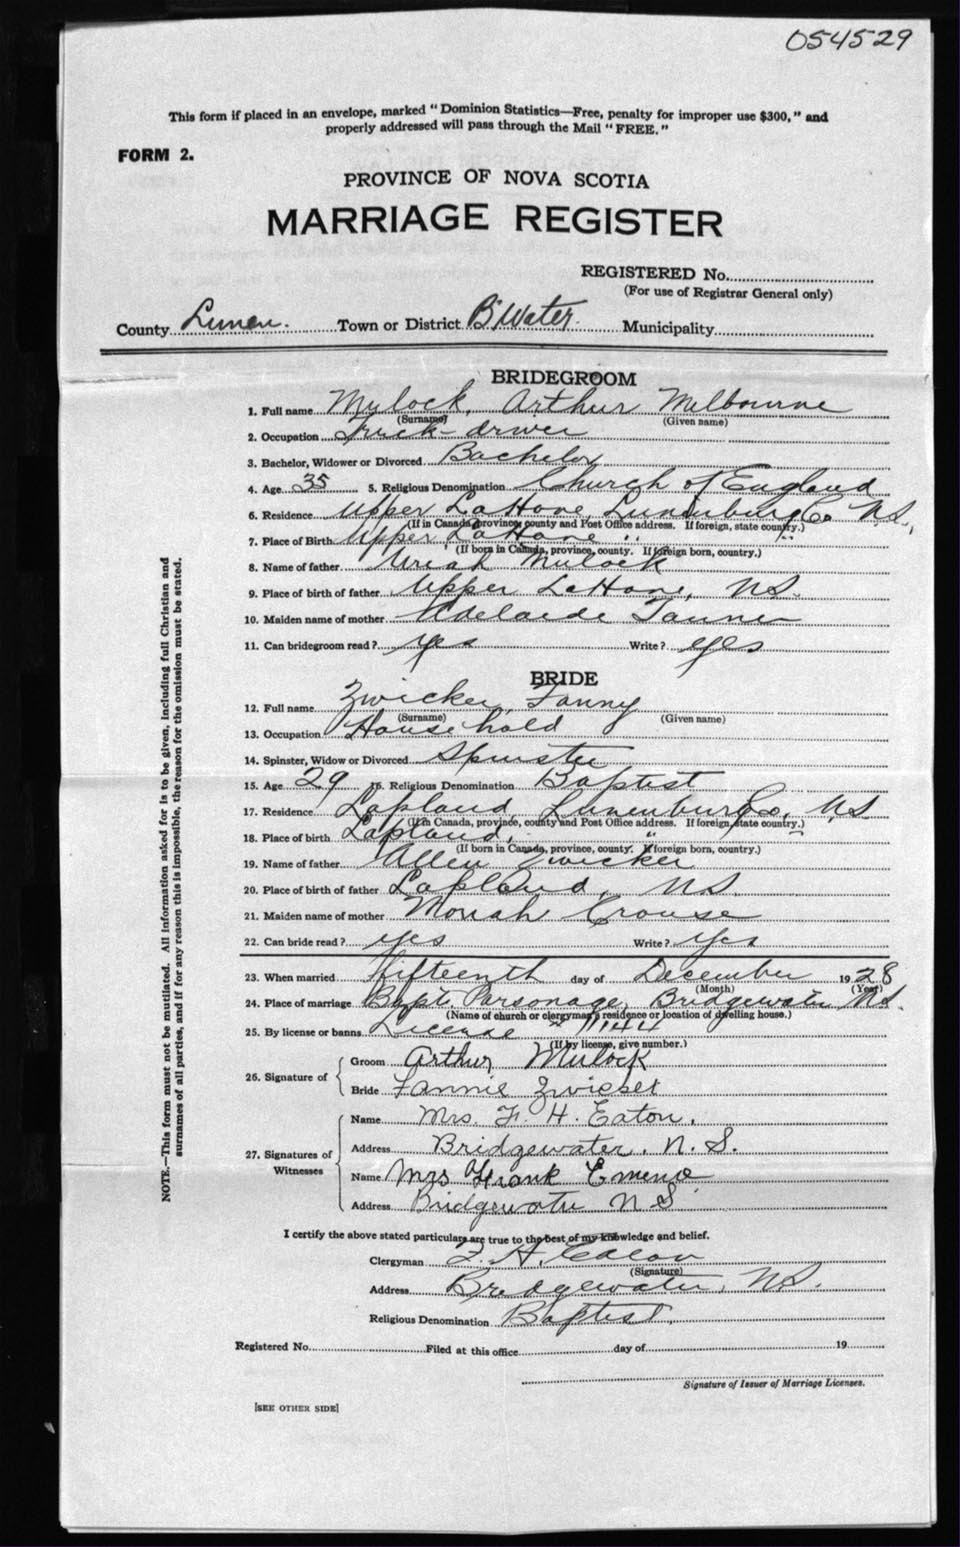 054529
This form if placed in an envelope, marked "Dominion Statistics—Free, penalty for improper use $300," and
properly addressed will pass through the Mail "FREE."
FORM 2.
PROVINCE OF NOVA SCOTIA
MARRIAGE REGISTER
REGISTERED No.
(For use of Registrar General only)
County Lunen. Town or District B'Water. Municipality
BRIDEGROOM
1. Full name Mylock, Arthur Melbourne
(Surname) (Given name)
2. Occupation Truck-driver
3. Bachelor, Widower or Divorced Bachelor
4. Age 35 5. Religious Denomination Church of England
6. Residence Upper LaHave, Lunenburg Co N.S.,
(If in Canada, province, county and Post Office address. If foreign, state country.)
7. Place of Birth Upper LaHave " "
(If born in Canada, province, county. If foreign born, country.)
8. Name of father Uriah Mulock
9. Place of birth of father Upper LaHave, N.S.
10. Maiden name of mother Adelaide Tanner
11. Can bridegroom read? yes Write? yes
BRIDE
12. Full name Zwicker, Fanny
(Surname) (Given name)
13. Occupation Household
14. Spinster, Widow or Divorced Spinster
15. Age 29 16. Religious Denomination Baptist
17. Residence Lapland, Lunenburg Co., N.S
(If in Canada, province, county and Post Office address. If foreign, state country.)
18. Place of birth Lapland, " "
(If born in Canada, province, county. If foreign born, country.)
19. Name of father Allen Zwicker
20. Place of birth of father Lapland, N.S.
21. Maiden name of mother Moriah Crouse
22. Can bride read? yes Write? yes
23. When married fifteenth day of December 1928
(Month) (Year)
24. Place of marriage Bapt. Parsonage, Bridgewater, N.S.
(Name of church or clergyman's residence or location of dwelling house.)
25. By license or banns License # 11144
(If by license, give number.)
26. Signature of
Groom Arthur Mulock
Bride Fannie Zwicker
27. Signatures of Witnesses
Name Mrs. F. H. Eaton.
Address Bridgewater, N. S.
Name Mrs Frank Emeno
Address Bridgewater N S
I certify the above stated particulars are true to the best of my knowledge and belief.
Clergyman F. H. Eaton
(Signature)
Address Bridgewater, N.S.
Religious Denomination Baptist.
Registered No. Filed at this office day of 19
Signature of Issuer of Marriage Licenses.
[SEE OTHER SIDE]
NOTE.—This form must not be mutilated. All information asked for is to be given, including full Christian and
surnames of all parties, and if for any reason this is impossible, the reason for the omission must be stated.